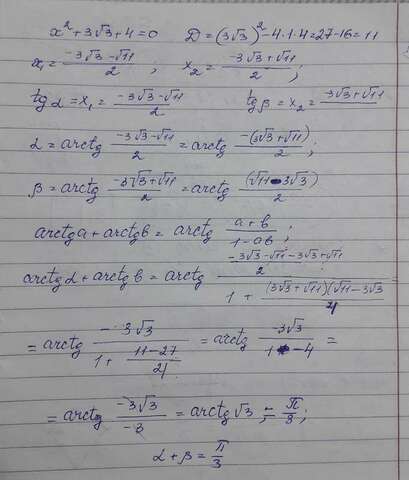 x² + 3√3 + 4 = 0    D = (3√3)² - 4·1·4 = 27 - 16 = 11
x₁ = (-3√3 - √11)/2 ;    x₂ = (-3√3 + √11)/2 ;
tg α = x₁ = (-3√3 - √11)/2    tg β = x₂ = (-3√3 + √11)/2
α = arctg (-3√3 - √11)/2 = arctg -(3√3 + √11)/2 ;
β = arctg (-3√3 + √11)/2 = arctg (√11 - 3√3)/2
arctg a + arctg b = arctg (a + b)/(1 - ab) ;
arctg α + arctg b = arctg ((-3√3 - √11 - 3√3 + √11)/2)/(1 + (3√3 + √11)(√11 - 3√3)/4) =
= arctg (-3√3)/(1 + (11 - 27)/4) = arctg (-3√3)/(1 - 4) =
= arctg (-3√3)/(-3) = arctg √3 = π/3 ;
α + β = π/3